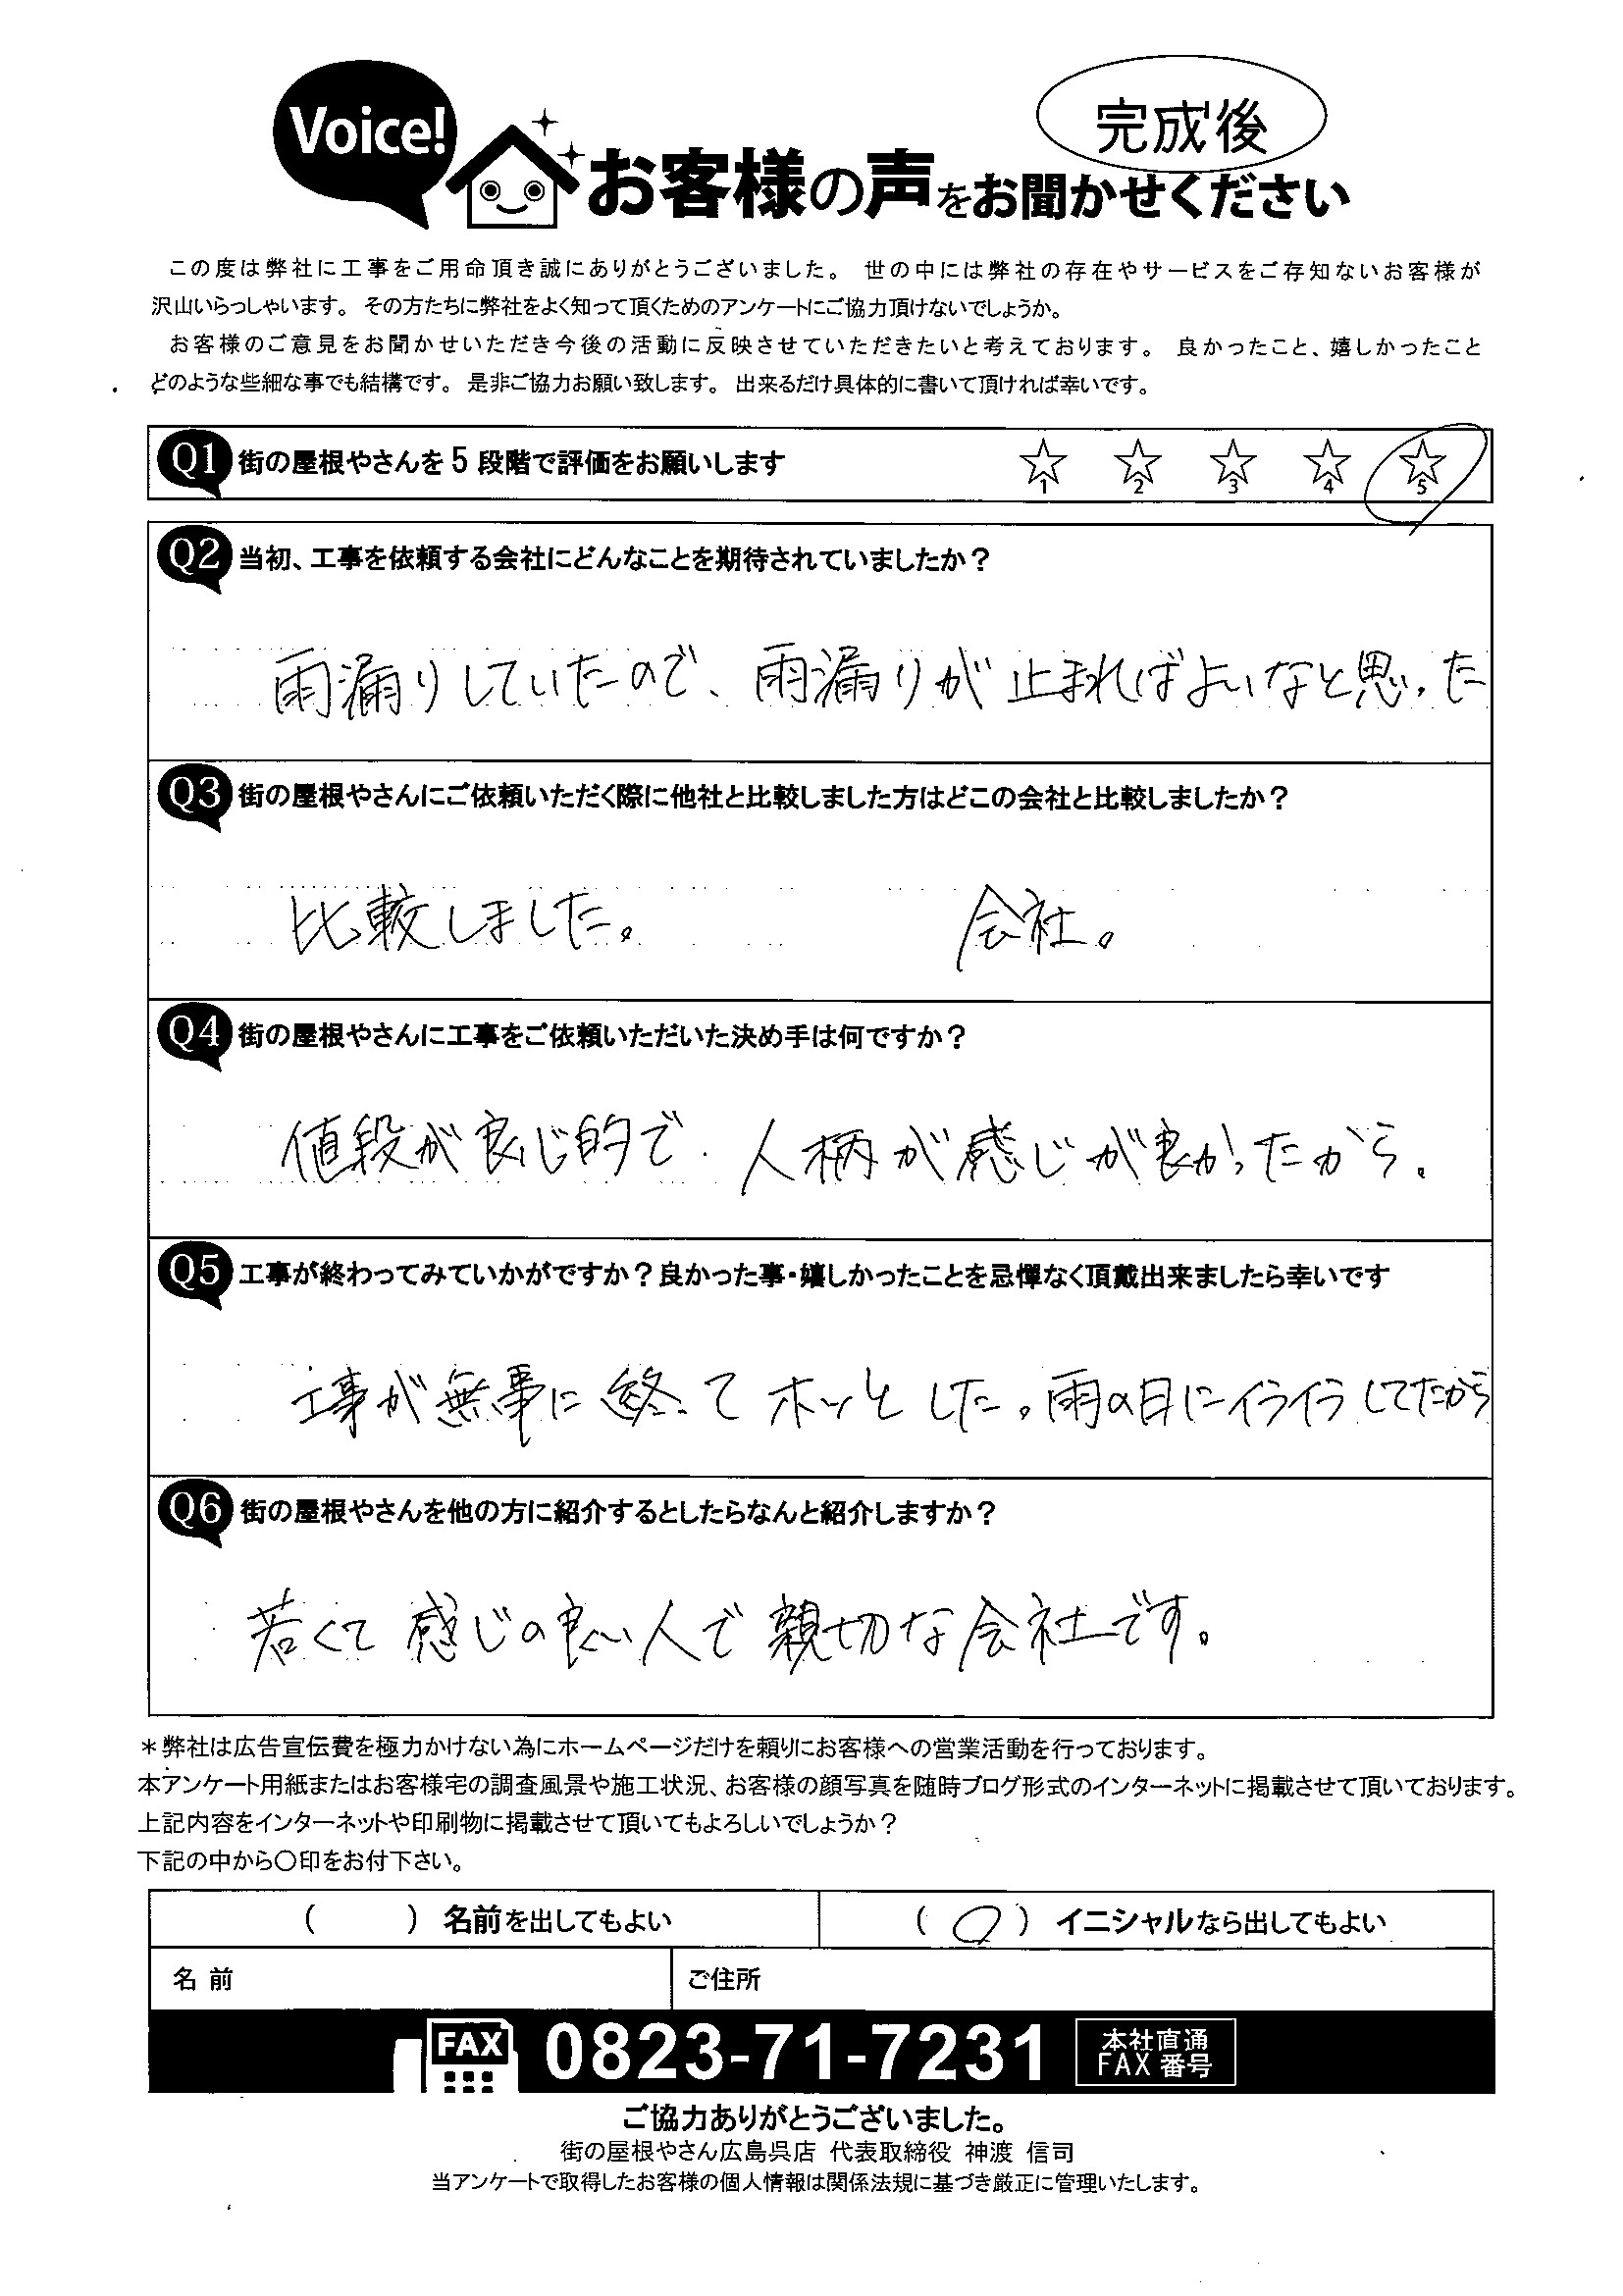 Voice!
完成後
お客様の声をお聞かせください
この度は弊社に工事をご用命頂き誠にありがとうございました。 世の中には弊社の存在やサービスをご存知ないお客様が
沢山いらっしゃいます。 その方たちに弊社をよく知って頂くためのアンケートにご協力頂けないでしょうか。
お客様のご意見をお聞かせいただき今後の活動に反映させていただきたいと考えております。 良かったこと、嬉しかったこと
どのような些細な事でも結構です。 是非ご協力お願い致します。 出来るだけ具体的に書いて頂ければ幸いです。
Q1 街の屋根やさんを5段階で評価をお願いします ☆1 ☆2 ☆3 ☆4 ☆5
Q2 当初、工事を依頼する会社にどんなことを期待されていましたか?
雨漏りしていたので、雨漏りが止まればよいなと思った
Q3 街の屋根やさんにご依頼いただく際に他社と比較しました方はどこの会社と比較しましたか?
比較しました。 会社。
Q4 街の屋根やさんに工事をご依頼いただいた決め手は何ですか?
値段が良心的で、人柄が感じが良かったから。
Q5 工事が終わってみていかがですか?良かった事・嬉しかったことを忌憚なく頂戴出来ましたら幸いです
工事が無事に終ってホッとした。雨の日にイライラしてたから
Q6 街の屋根やさんを他の方に紹介するとしたらなんと紹介しますか?
若くて感じの良い人で親切な会社です。
*弊社は広告宣伝費を極力かけない為にホームページだけを頼りにお客様への営業活動を行っております。
本アンケート用紙またはお客様宅の調査風景や施工状況、お客様の顔写真を随時ブログ形式のインターネットに掲載させて頂いております。
上記内容をインターネットや印刷物に掲載させて頂いてもよろしいでしょうか?
下記の中から〇印をお付下さい。
( ) 名前を出してもよい (〇) イニシャルなら出してもよい
名 前 ご住所
FAX 0823-71-7231 本社直通
FAX 番号
ご協力ありがとうございました。
街の屋根やさん広島呉店 代表取締役 神渡 信司
当アンケートで取得したお客様の個人情報は関係法規に基づき厳正に管理いたします。